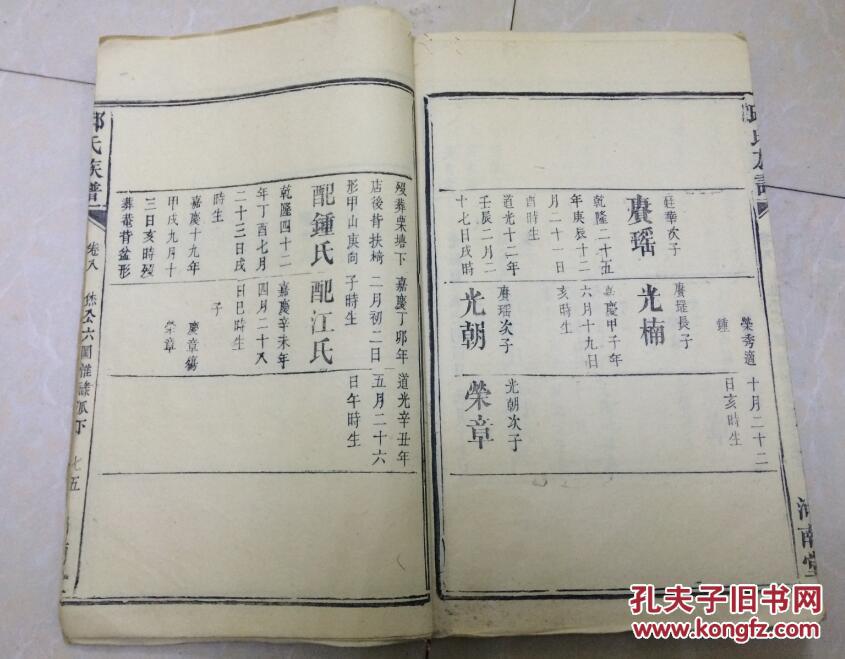 河南堂
榮秀適
鍾
十月二十二
日亥時生
鈺華次子
賡瑶
乾隆二十五
年庚辰十二
月二十一日
酉時生
道光十二年
壬辰二月二
十七日戌時
賡瑶長子
光楠
嘉慶甲子年
六月十九日
亥時生
賡瑶次子
光朝
光朝次子
榮章
殁葬栗塘下
店後背扶椅
形甲山庚向
配鍾氏
乾隆四十二
年丁酉七月
二十三日戌
時生
嘉慶十九年
甲戌九月十
三日亥時殁
葬菴背盆形
嘉慶丁卯年
二月初二日
子時生
配江氏
嘉慶辛未年
四月二十八
日巳時生
子
慶章
榮章
道光辛丑年
五月二十六
日午時生
氏族譜
卷八
七五
孔夫子旧书网
www.kongfz.com